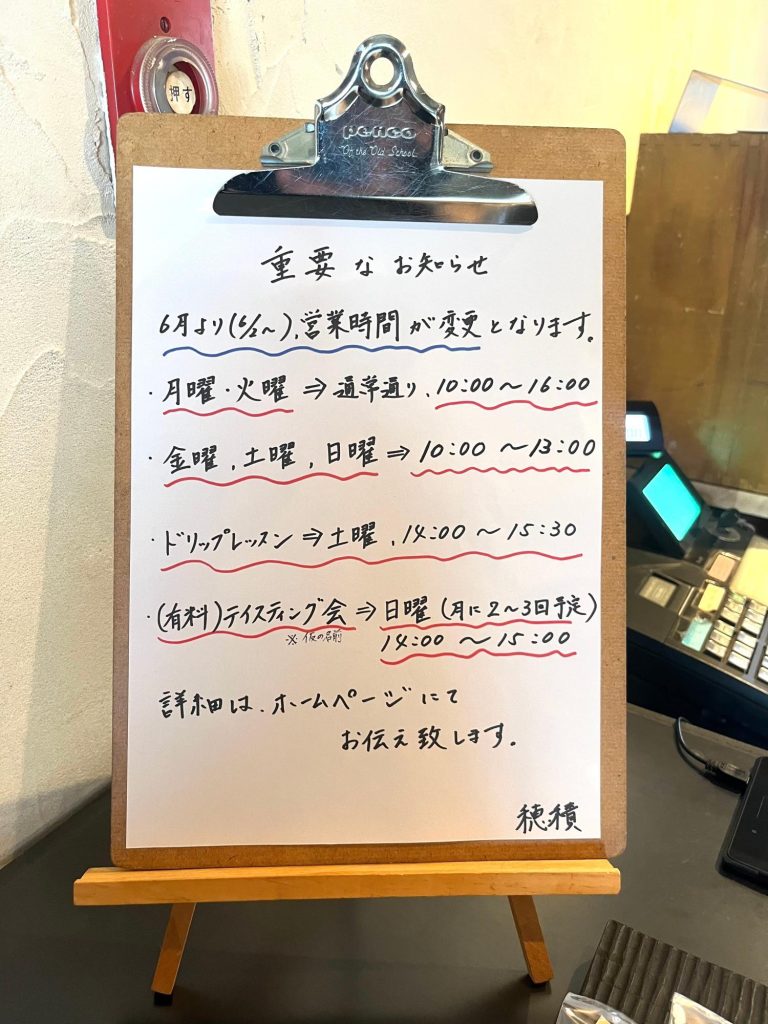 押す
penco
Of the Old School
重要なお知らせ
6月より(6/2～)、営業時間が変更となります。
・月曜・火曜⇒通常通り、10:00～16:00
・金曜、土曜、日曜⇒10:00～13:00
・ドリップレッスン⇒土曜、14:00～15:30
・(有料)テイスティング会⇒日曜(月に2～3回予定)
※仮の名前
14:00～15:00
詳細は、ホームページにて
お伝え致します。
穂積